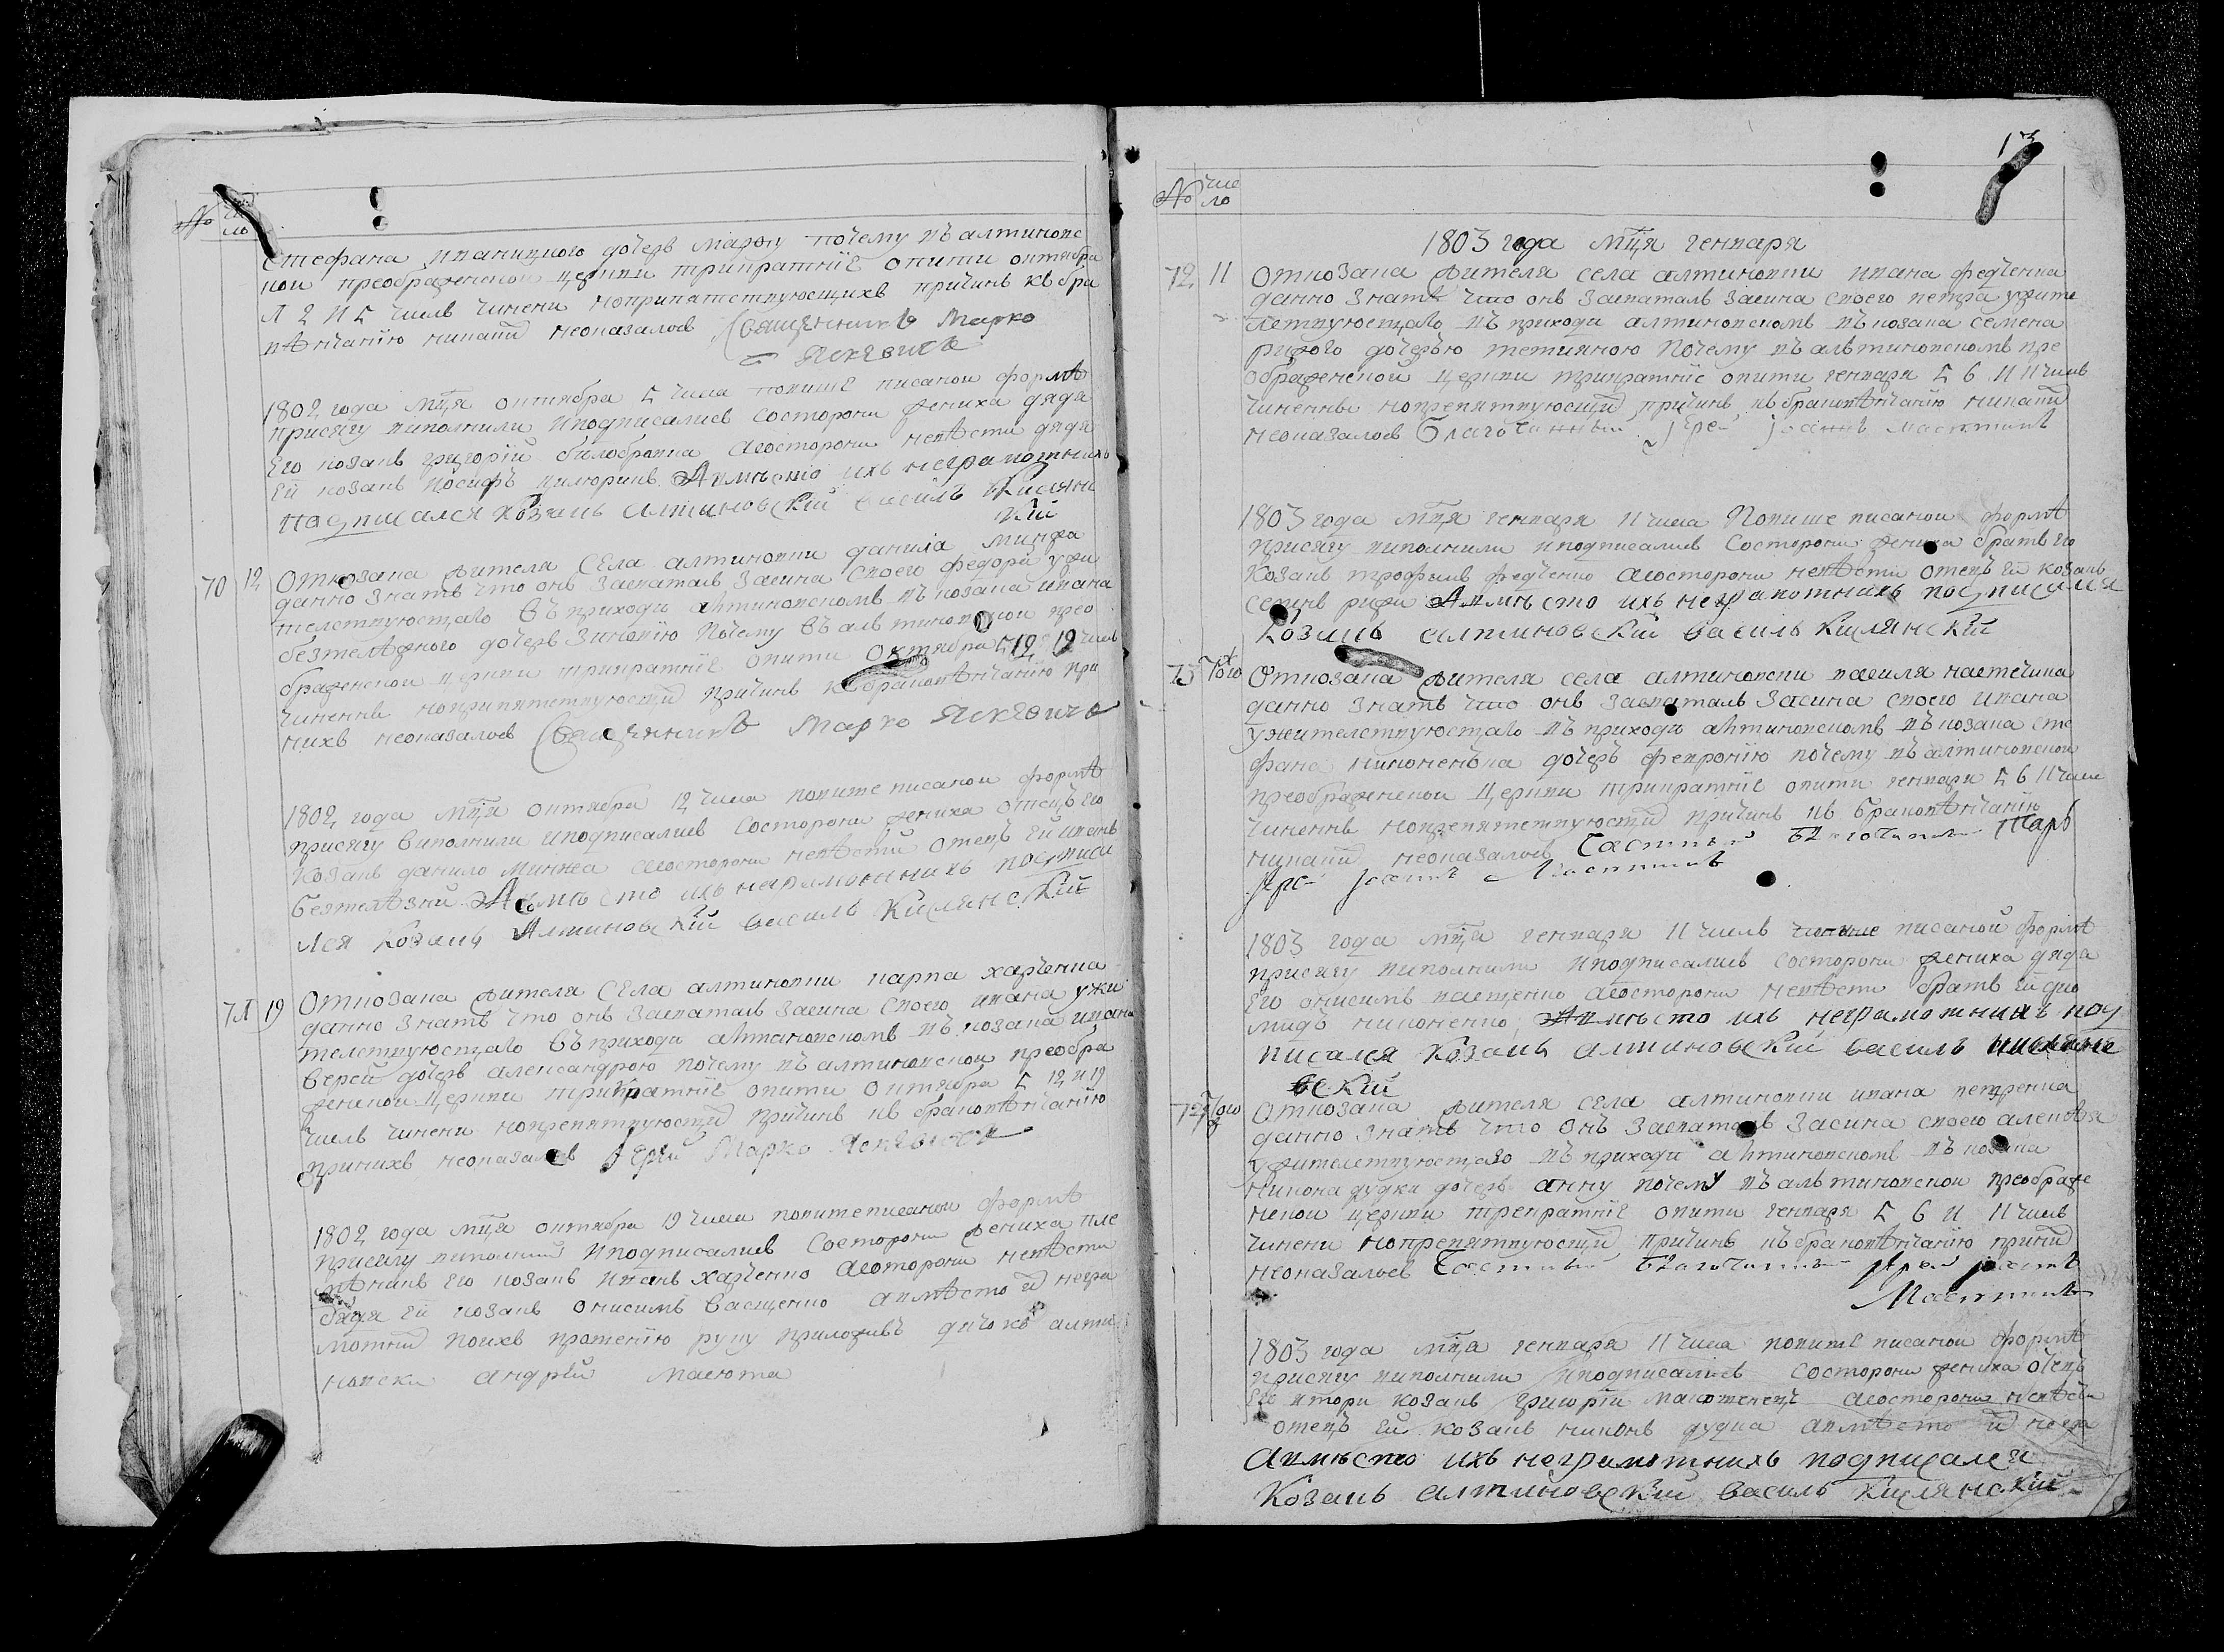 № число
стефана иваницкого дочерь марфу почему въ алтиновс
кои преображенскои церкви трикратніе опити октября
1 2 и 5 числь чинени ноприпятствующихъ причинъ къ бра
вѣнчанію никаких неоказалось Священникъ Марко
Яскевичъ
1802 года мца октября 5 числа повише писанои формѣ
присягу виполнили иподписались состорони жениха дядя
его козакъ григорій билобровка асосторони невѣсти дядя
ей козакъ иосифъ цилюрикъ Авмѣсто ихъ неграмотнихъ
подписался козакъ алтиновский василь Кислянс
кій
70 12 Откозака жителя села алтиновки данила минжа
данно знать что онъ засваталъ засина своего федора ужи
телствующаго въ приходи алтиновскомъ въ козака ивана
безтелѣжного дочерь зиновію почему въ алтиновскои прео
браженскои церкви трикратніе опити октября 5 12 19 числь
чиненнъ ноприпятствующих причинъ к бракопвѣнчанію при
нихъ неоказалось Священникъ Марко Яскевичъ
1802 года мца октября 12 числа повише писанои формѣ
присягу виполнили иподписались состорони жениха отецъ его
козакъ данило минжа асосторони невѣсти отецъ ей иванъ
безтелѣзній Авмѣсто ихъ неграмотнихъ подписа
лся козакъ Алтиновскій василь Кислянскій
71 19 Откозака жителя села алтиновки карпа харченка
данно знать что онъ засваталъ засина своего ивана ужи
телствующаго въ приходи алтиновскомъ въ козака ивана
верей дочерь александрою почему въ алтиновскои преобра
женскои церкви трикратніе опити октября 5 12 и 19
числь чинени нопрепятствующих причинъ къ браковѣнчанію
принихъ неоказалось Іерей Марко Яскевичъ
1802 года мца октября 19 числа повише писанои формѣ
присягу виполнили иподписались состорони жениха пле
мѣникъ его козакъ иванъ харченко асосторони невѣсти
дядя ей козакъ онисимъ ващенко авмѣсто их негра
мотних поихъ прошенію руку приложивъ дячокъ алти
новски андрей масюта
13
№ число
1803 года мца генваря
72 11 Откозака жителя села алтиновки ивана федченка
данно знать что онъ засваталъ засина своего петра ужите
лствующаго въ приходи алтиновскомъ въ козака семена
рижого дочерью тетияною почему въ алтиновскомъ пре
ображенской церкви трикратніе опити генваря 5 6 и 11 числъ
чиненнъ нопрепятствующих причинъ къ браковѣнчанію никаких
неоказалось благочинный Іерей Іоаннъ
1803 года мца генваря 11 числа Повише писанои формѣ
присягу виполнили иподписались состорони жениха братъ его
козакъ трофимъ федченко асосторони невѣсти отецъ ей козакъ
семенъ рижи Авмѣсто ихъ неграмотнихъ подписался
Козакъ алтиновскій василь Кислянскій
73 Того Откозака жителя села алтиновки василя
данно знать что онъ засваталъ засина своего ивана
ужителствующаго въ приходи алтиновскомъ въ козака сте
фана никоненъка дочерь февронію почему въ алтиновскои
преображенскои церкви трикратніе опити генваря 5 6 11 числ
чиненнъ нопрепятствующих причинъ къ браковѣнчанію
никаких неоказалось
1803 года мца генваря 11 числь писаной формѣ
присягу виполнили иподписались состорони жениха дядя
его онисимъ ващенко асосторони невѣсти братъ ей дио
мидъ никоненко Авмѣсто ихъ неграмотнихъ под
писался козакъ алтиновскій василь
скій
Того Откозака жителя села алтиновки ивана петренка
данно знать что онъ засваталъ засина своего алексѣя
ужителствующаго въ приходи алтиновскомъ въ козака
никона дудки дочерь анну почему въ алтиновскои преображе
нскои церкви трекратніе опити генваря 5 6 и 11 числъ
чинени нопрепятствующих причинъ къ браковѣнчанію
неоказалось
1803 года мца генваря 11 числа повише писанои формѣ
присягу виполнили иподписались состорони жениха отецъ
его втори козакъ григорій асосторони невѣсти
отецъ ей козакъ никонъ дудка авмѣсто их негра
Авмѣсто ихъ неграмотнихъ подписался
Козакъ алтиновскій василь Кислянскій